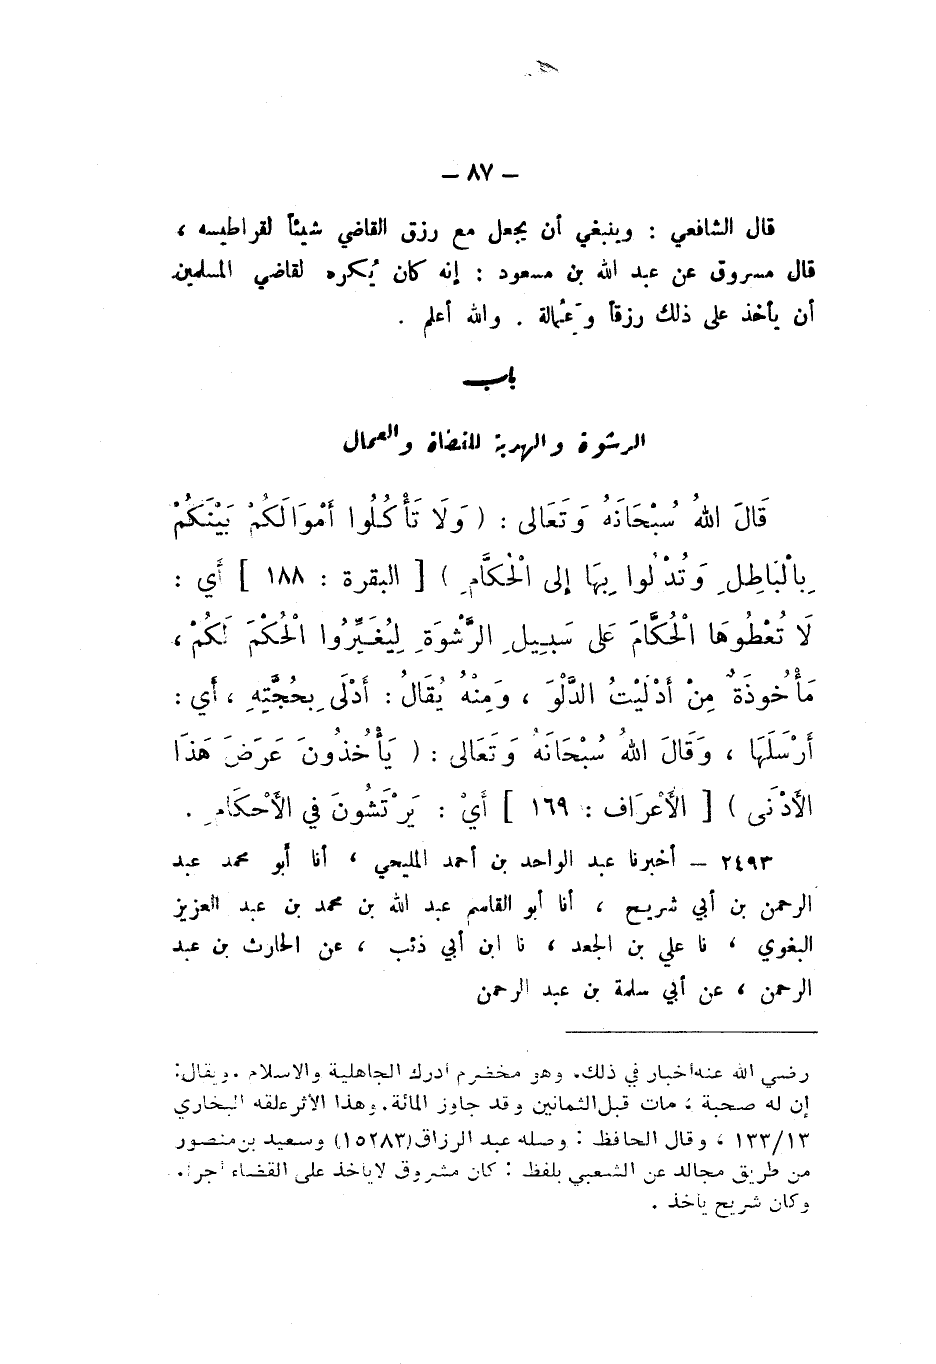 - ٨٧ -
قال الشافعي : وينبغي أن يجعل مع رزق القاضي شيئاً لقراطيسه ،
قال مسروق عن عبد الله بن مسعود : إنه كان يُكره لقاضي المسلمين
أن يأخذ على ذلك رزقاً وعُمالة . والله أعلم .
باب
الرشوة والهدية للقضاة والعمال
قَالَ اللهُ سُبْحَانَهُ وَتَعَالى : ( وَلَا تَأْكُلُوا أَمْوَالَكُمْ بَيْنَكُمْ
بِالْبَاطِلِ وَتُدْلُوا بِهَا إلى الْحُكَّامِ ) [ البقرة : ١٨٨ ] أَي :
لَا تُعْطُوهَا الْحُكَّامَ عَلى سَبِيلِ الرَّشْوَةِ لِيُغَيِّرُوا الْحُكْمَ لَكُمْ ،
مَأْخُوذَةٌ مِنْ أَدْلَيْتُ الدَّلْوَ ، وَمِنْهُ يُقَالُ : أَدْلَى بِحُجَّتِهِ ، أَي :
أَرْسَلَهَا ، وَقَالَ اللهُ سُبْحَانَهُ وَتَعَالى : ( يَأْخُذُونَ عَرَضَ هَذَا
الأَدْنَى ) [ الأَعْرَاف : ١٦٩ ] أَيْ : يَرْتَشُونَ في الأَحْكَامِ .
٢٤٩٣ - أخبرنا عبد الواحد بن أحمد المليحي ، أنا أبو محمد عبد
الرحمن بن أبي شريح ، أنا أبو القاسم عبد الله بن محمد بن عبد العزيز
البغوي ، نا علي بن الجعد ، نا ابن أبي ذئب ، عن الحارث بن عبد
الرحمن ، عن أبي سلمة بن عبد الرحمن
رضي الله عنه أخبار في ذلك. وهو مخضرم أدرك الجاهلية والاسلام . ويقال:
إن له صحبة ؛ مات قبل الثمانين وقد جاوز المائة. وهذا الأثر علقه البخاري
١٣٣/١٣ ، وقال الحافظ : وصله عبد الرزاق (١٥٢٨٣) وسعيد بن منصور
من طريق مجالد عن الشعبي بلفظ : كان مسروق لا يأخذ على القضاء أجراً.
وكان شريح يأخذ .